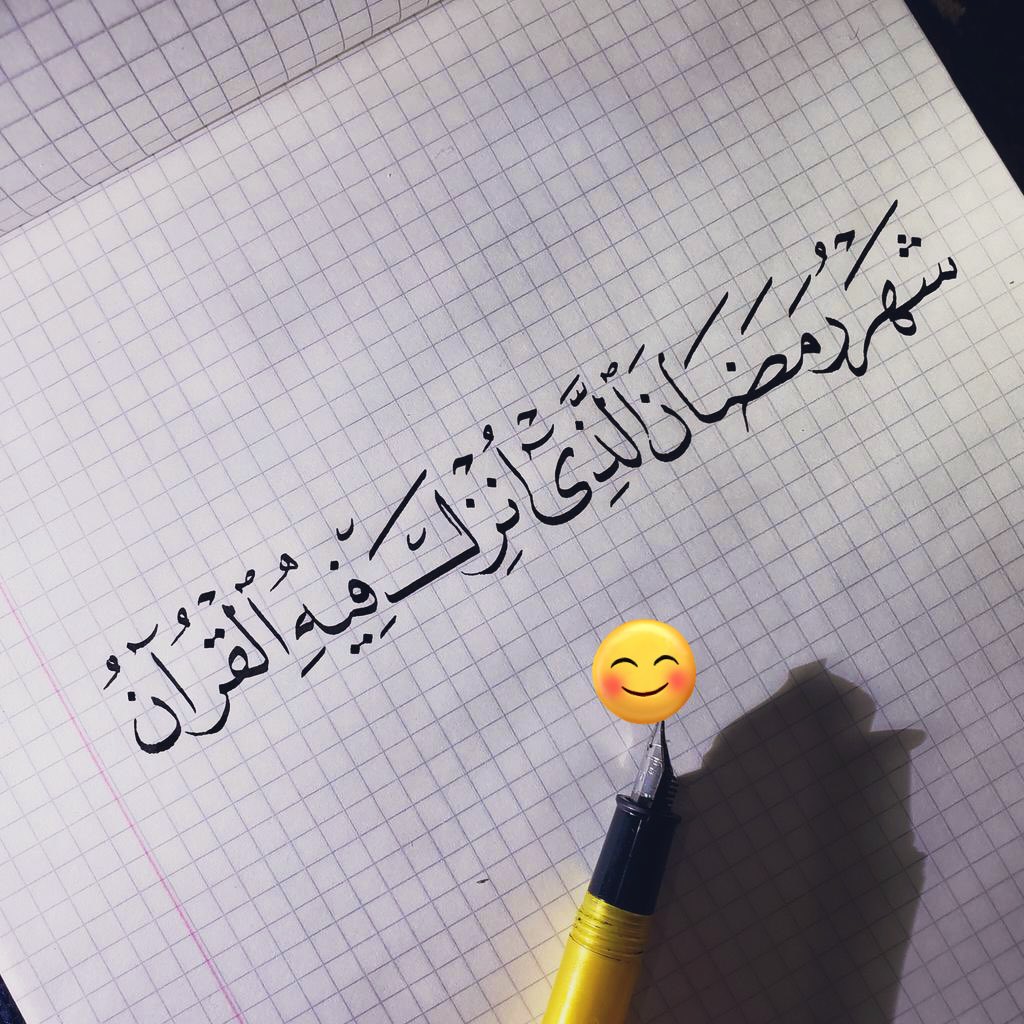 شَهْرُ رَمَضَانَ ٱلَّذِىٓ أُنْزِلَ فِيهِ ٱلْقُرْآنُ